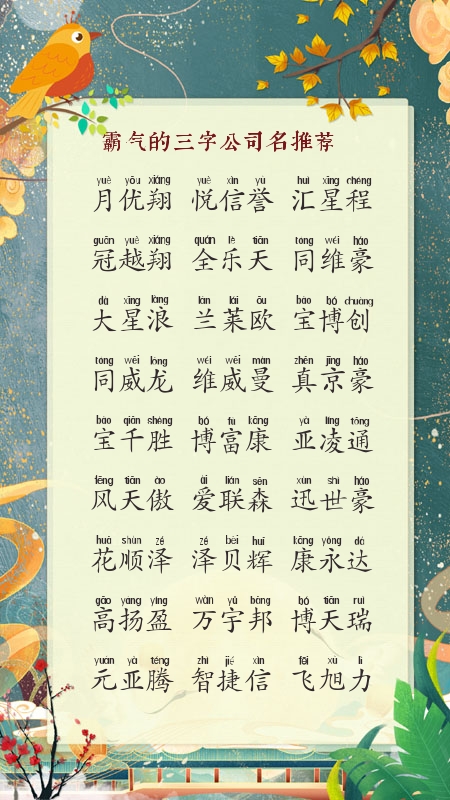 霸气的三字公司名推荐
yuè yōu xiáng yuè xìn yù huì xīng chéng
月优翔 悦信誉 汇星程
guān yuè xiáng quán lè tiān tóng wéi háo
冠越翔 全乐天 同维豪
dà xīng làng lán lái ōu bǎo bó chuàng
大星浪 兰莱欧 宝博创
tóng wēi lóng wéi wēi màn zhēn jīng háo
同威龙 维威曼 真京豪
bǎo qiān shèng bó fù kāng yà líng tōng
宝千胜 博富康 亚凌通
fēng tiān ào ài lián sēn xùn shì háo
风天傲 爱联森 迅世豪
huā shùn zé zé bèi huī kāng yǒng dá
花顺泽 泽贝辉 康永达
gāo yáng yíng wàn yǔ bāng bó tiān ruì
高扬盈 万宇邦 博天瑞
yuán yà téng zhì jié xìn fēi xù lì
元亚腾 智捷信 飞旭力